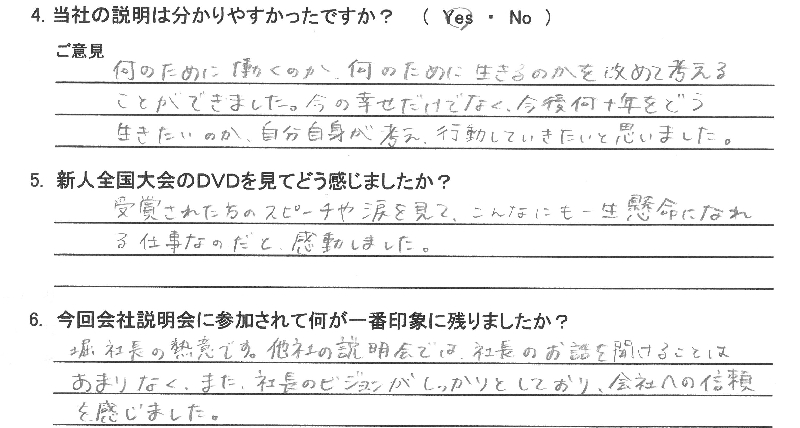 4. 当社の説明は分かりやすかったですか？ ( Yes ・ No )
ご意見
何のために働くのか、何のために生きるのかを改めて考える
ことができました。今の幸せだけでなく、今後何十年をどう
生きたいのか、自分自身が考え、行動していきたいと思いました。
5. 新人全国大会のDVDを見てどう感じましたか？
受賞されたちのスピーチや涙を見て、こんなにも一生懸命になれ
る仕事なのだと、感動しました。
6. 今回会社説明会に参加されて何が一番印象に残りましたか？
堀社長の熱意です。他社の説明会では、社長のお話を聞けることは
あまりなく、また、社長のビジョンがしっかりとしており、会社への信頼
を感じました。